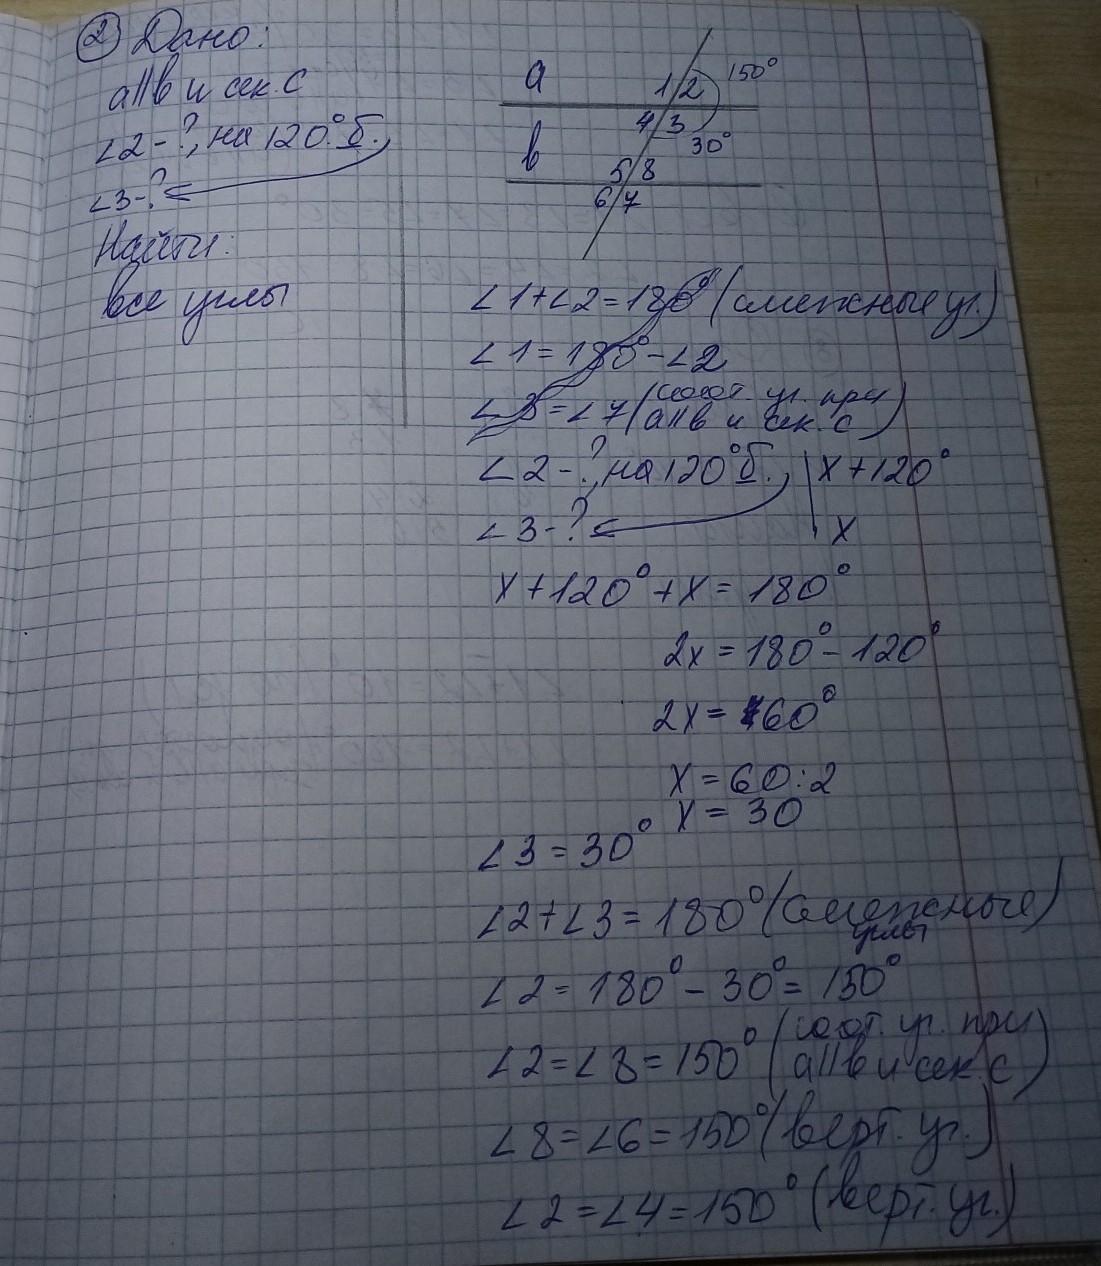 ② Дано:
a||b и сек. c
∠2-?, на 120° б.,
∠3-?
Найти:
все углы
a
b
1 2 150°
4 3
30°
5 8
6 7
∠1+∠2=180° (смежные уг.)
∠1=180°-∠2
∠3=∠7 (соот. уг. при
a||b и сек. c)
∠2-?, на 120° б., | x+120°
∠3-? | x
x+120°+x=180°
2x=180°-120°
2x=60°
x=60:2
x=30
∠3=30°
∠2+∠3=180° (смежные
углы)
∠2=180°-30°=150°
∠2=∠8=150° (соот. уг. при
a||b и сек. c)
∠8=∠6=150° (верт. уг.)
∠2=∠4=150° (верт. уг.)